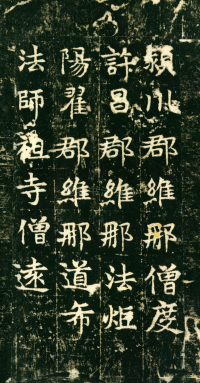 潁川郡維那僧度
許昌郡維那法炬
陽翟郡維那道布
法師祖寺僧遠